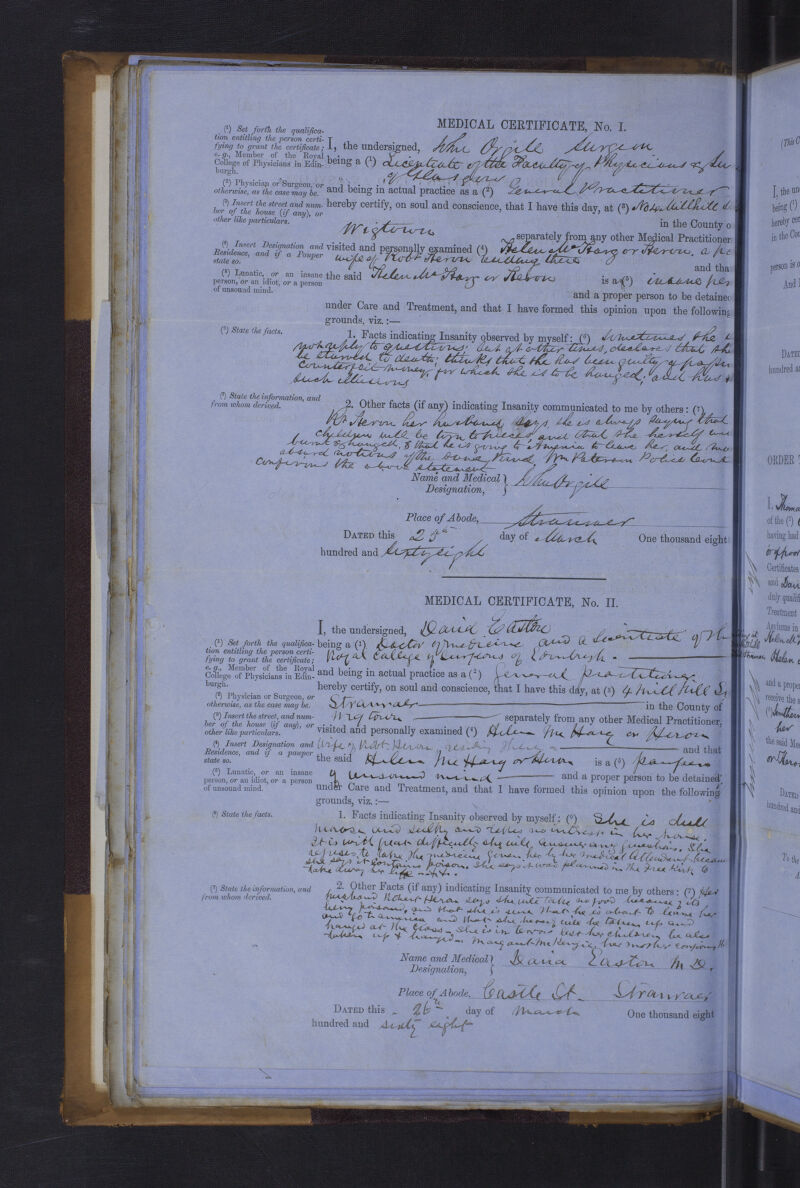 MEDICAL CERTIFICATE, No. I.
(¹) Set forth the qualifica-
tion entitling the person certi-
fying to grant the certificate;
e. g., Member of the Royal
College of Physicians in Edin-
burgh.
(²) Physician or Surgeon, or
otherwise, as the case may be.
(³) Insert the street and num-
ber of the house (if any), or
other like particulars.
(⁴) Insert Designation and
Residence, and if a Pauper
state so.
(⁵) Lunatic, or an insane
person, or an idiot, or a person
of unsound mind.
(⁶) State the facts.
(⁷) State the information, and
from whom derived.
I, the undersigned, Orgill Surgeon
being a (¹) Licentiate of the Faculty of Physicians & Su
of Glasgow
and being in actual practice as a (²) General Practitioner
hereby certify, on soul and conscience, that I have this day, at (³) No 4 Millhill S
Wigtown in the County o
separately from any other Medical Practitioner
visited and personally examined (⁴) Helen McHarg or Heron, a pa
wife of Robt Heron residing there and tha
the said Helen McHarg or Heron is a (⁵) insane per
and a proper person to be detained
under Care and Treatment, and that I have formed this opinion upon the following
grounds, viz.:—
1. Facts indicating Insanity observed by myself: (⁶) Sometimes she
not reply to questions; but at other times, declares that she
be starved to death; thinks that she has been guilty of passin
counterfeit money, for which she is to be hanged; and has
such illusions
2. Other facts (if any) indicating Insanity communicated to me by others: (⁷)
Rt Heron her husband says, she is always saying that
children will be torn to pieces, and that she herself will
burnt or hanged, & that he is going to America to leave her, and
absurd notions of the same kind. Wm Paterson Police
confirms the above statement
Name and Medical Designation, Orgill
Place of Abode, Stranraer
DATED this 25th day of March One thousand eight
hundred and Sixty eight
MEDICAL CERTIFICATE, No. II.
(¹) Set forth the qualifica-
tion entitling the person certi-
fying to grant the certificate;
e. g., Member of the Royal
College of Physicians in Edin-
burgh.
(²) Physician or Surgeon, or
otherwise, as the case may be.
(³) Insert the street, and num-
ber of the house (if any), or
other like particulars.
(⁴) Insert Designation and
Residence, and if a pauper
state so.
(⁵) Lunatic, or an insane
person, or an idiot, or a person
of unsound mind.
(⁶) State the facts.
(⁷) State the information, and
from whom derived.
I, the undersigned, David Easton
being a (¹) Doctor of medicine and a Licentiate of the
Royal College of Surgeons of Edinburgh.
and being in actual practice as a (²) general practitioner
hereby certify, on soul and conscience, that I have this day, at (³) 4 Mill Hill St
Stranraer in the County of
Wigtown separately from any other Medical Practitioner,
visited and personally examined (⁴) Helen McHarg or Heron
Wife of Robt. Heron residing there and that
the said Helen McHarg or Heron is a (⁵) pauper
of unsound mind and a proper person to be detained
under Care and Treatment, and that I have formed this opinion upon the following
grounds, viz.:—
1. Facts indicating Insanity observed by myself: (⁶) She is dull
morose and sulky and takes no interest in her house.
It is with great difficulty she will answer any question. She
refuses to take the medicine given her by her medical attendant because
she says it contains poison. She says it was planned in the Free Kirk to
take away her life
2. Other Facts (if any) indicating Insanity communicated to me by others: (⁷) Her
husband Robert Heron says she will take no food because of its
being poisoned, and that she is sure that he is about to leave her
and go to america and that she herself will be taken up and
hanged at the Cross - She is in terror lest her children be also
taken up & hanged - Margaret McKenzie, her mother confirms th
Name and Medical Designation, David Easton M D.
Place of Abode, Castle St. Stranraer
DATED this 26th day of March One thousand eight
hundred and sixty eight
ORDER